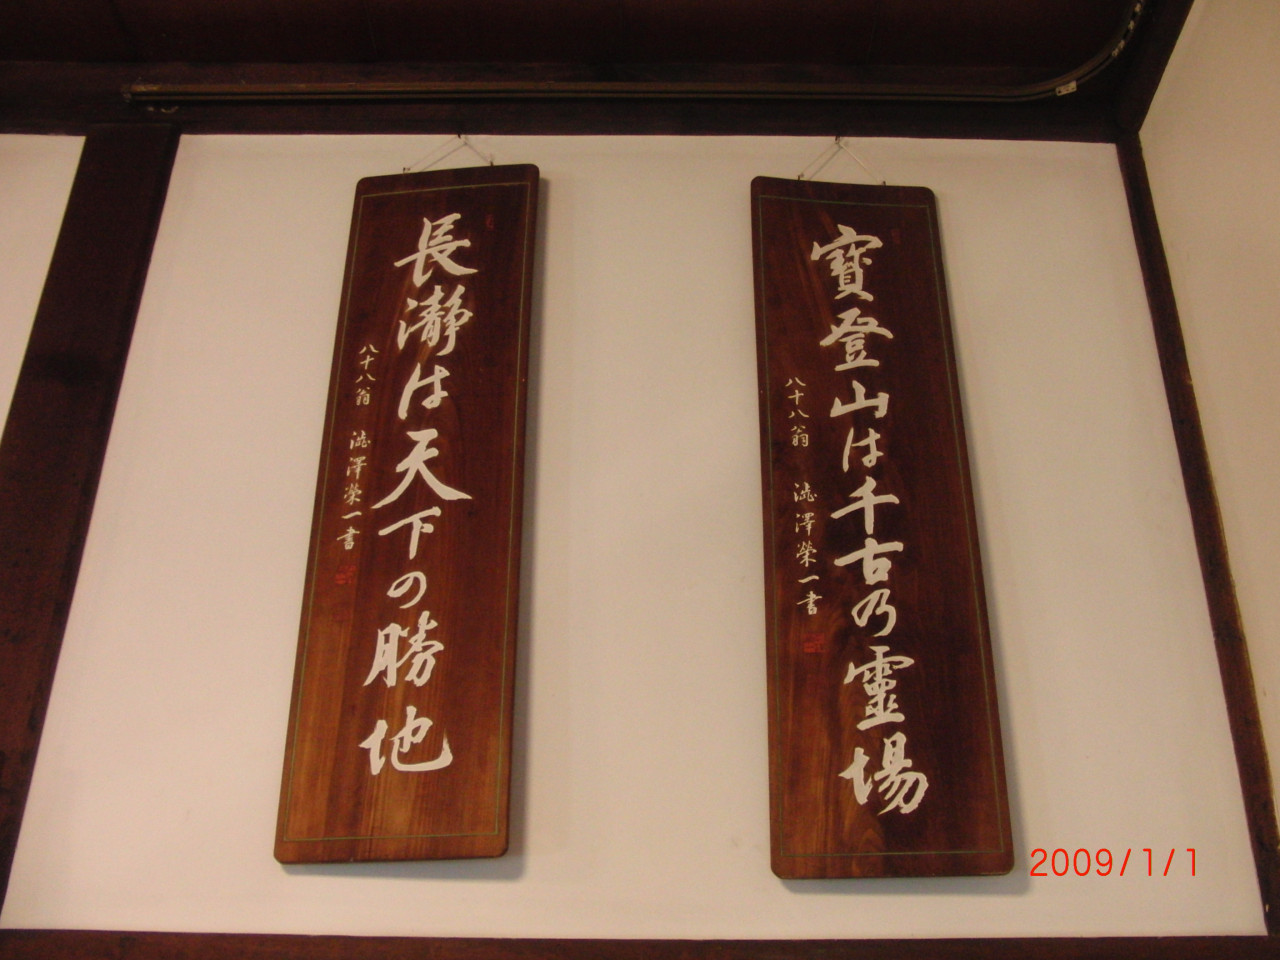 寶登山は千古乃靈場
八十八翁 澁澤榮一書
長瀞は天下の勝地
八十八翁 澁澤榮一書
2009/1/1